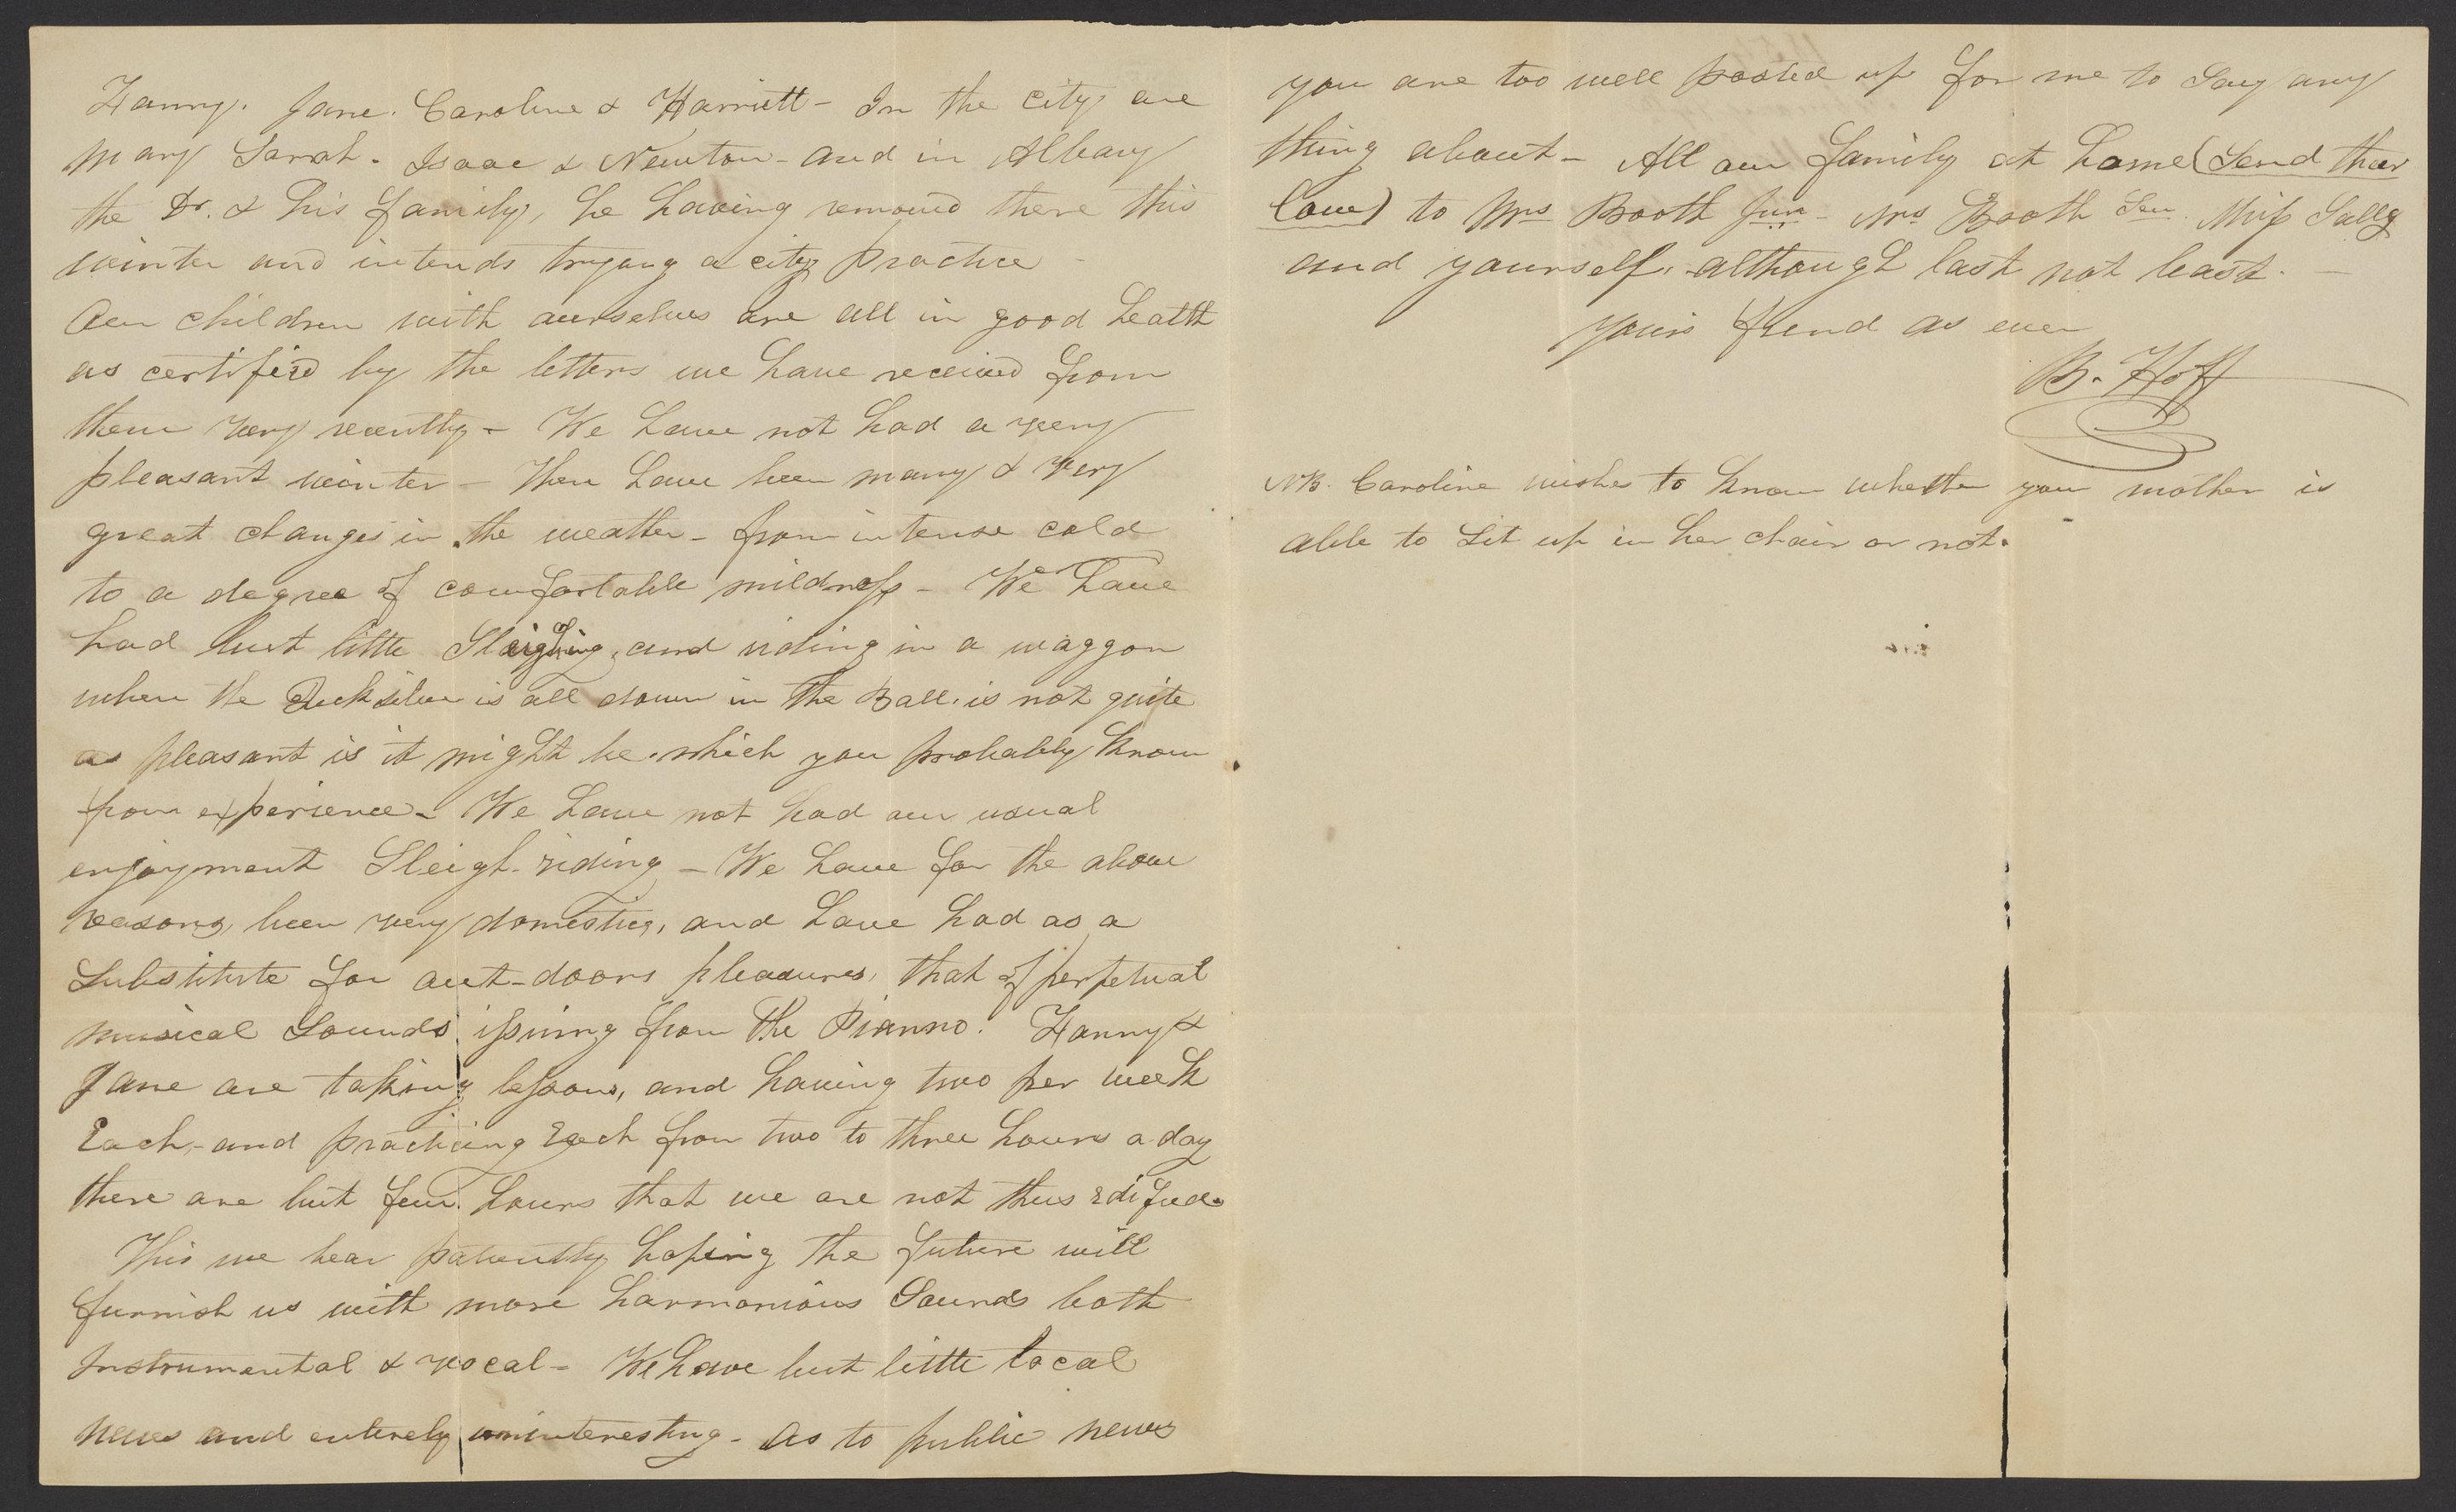 Fanny. Jane. Caroline & Harriett - In the city are
Mary Sarah. Isaac & Newton - and in Albany
the Dr. & his family, he having removed there this
winter and intends trying a city practice -
Our children with ourselves are all in good health
as certified by the letters we have received from
them very recently - We have not had a very
pleasant winter - There have been many & very
great changes in the weather - from intense cold
to a degree of comfortable mildness - We have
had but little Sleighing, and riding in a waggon
when the Quicksilver is all down in the Ball. is not quite
as pleasant is it might be. which you probably know
from experience - We have not had our usual
enjoyment Sleigh-riding - We have for the above
reasons, been very domestic, and have had as a
Substitute for out-doors pleasures, that of perpetual
musical Sounds issuing from the Pianno. Fanny &
Jane are taking lessons, and having two per week
Each, - and practicing Each from two to three hours a day
there are but few hours that we are not thus edified.
This we bear patiently hoping the future will
furnish us with more harmonious Sounds both
Instrumental & vocal - We have but little local
news and entirely uninteresting - As to public news
you are too well posted up for me to Say any
thing about - All our family at home (Send their
love) to Mrs Booth Jun - Mrs Booth Sen. Miss Sally
and yourself. although last not least. -
Yours friend as ever
B. Hoff
NB. Caroline wishes to know whether your mother is
able to Sit up in her chair or not.